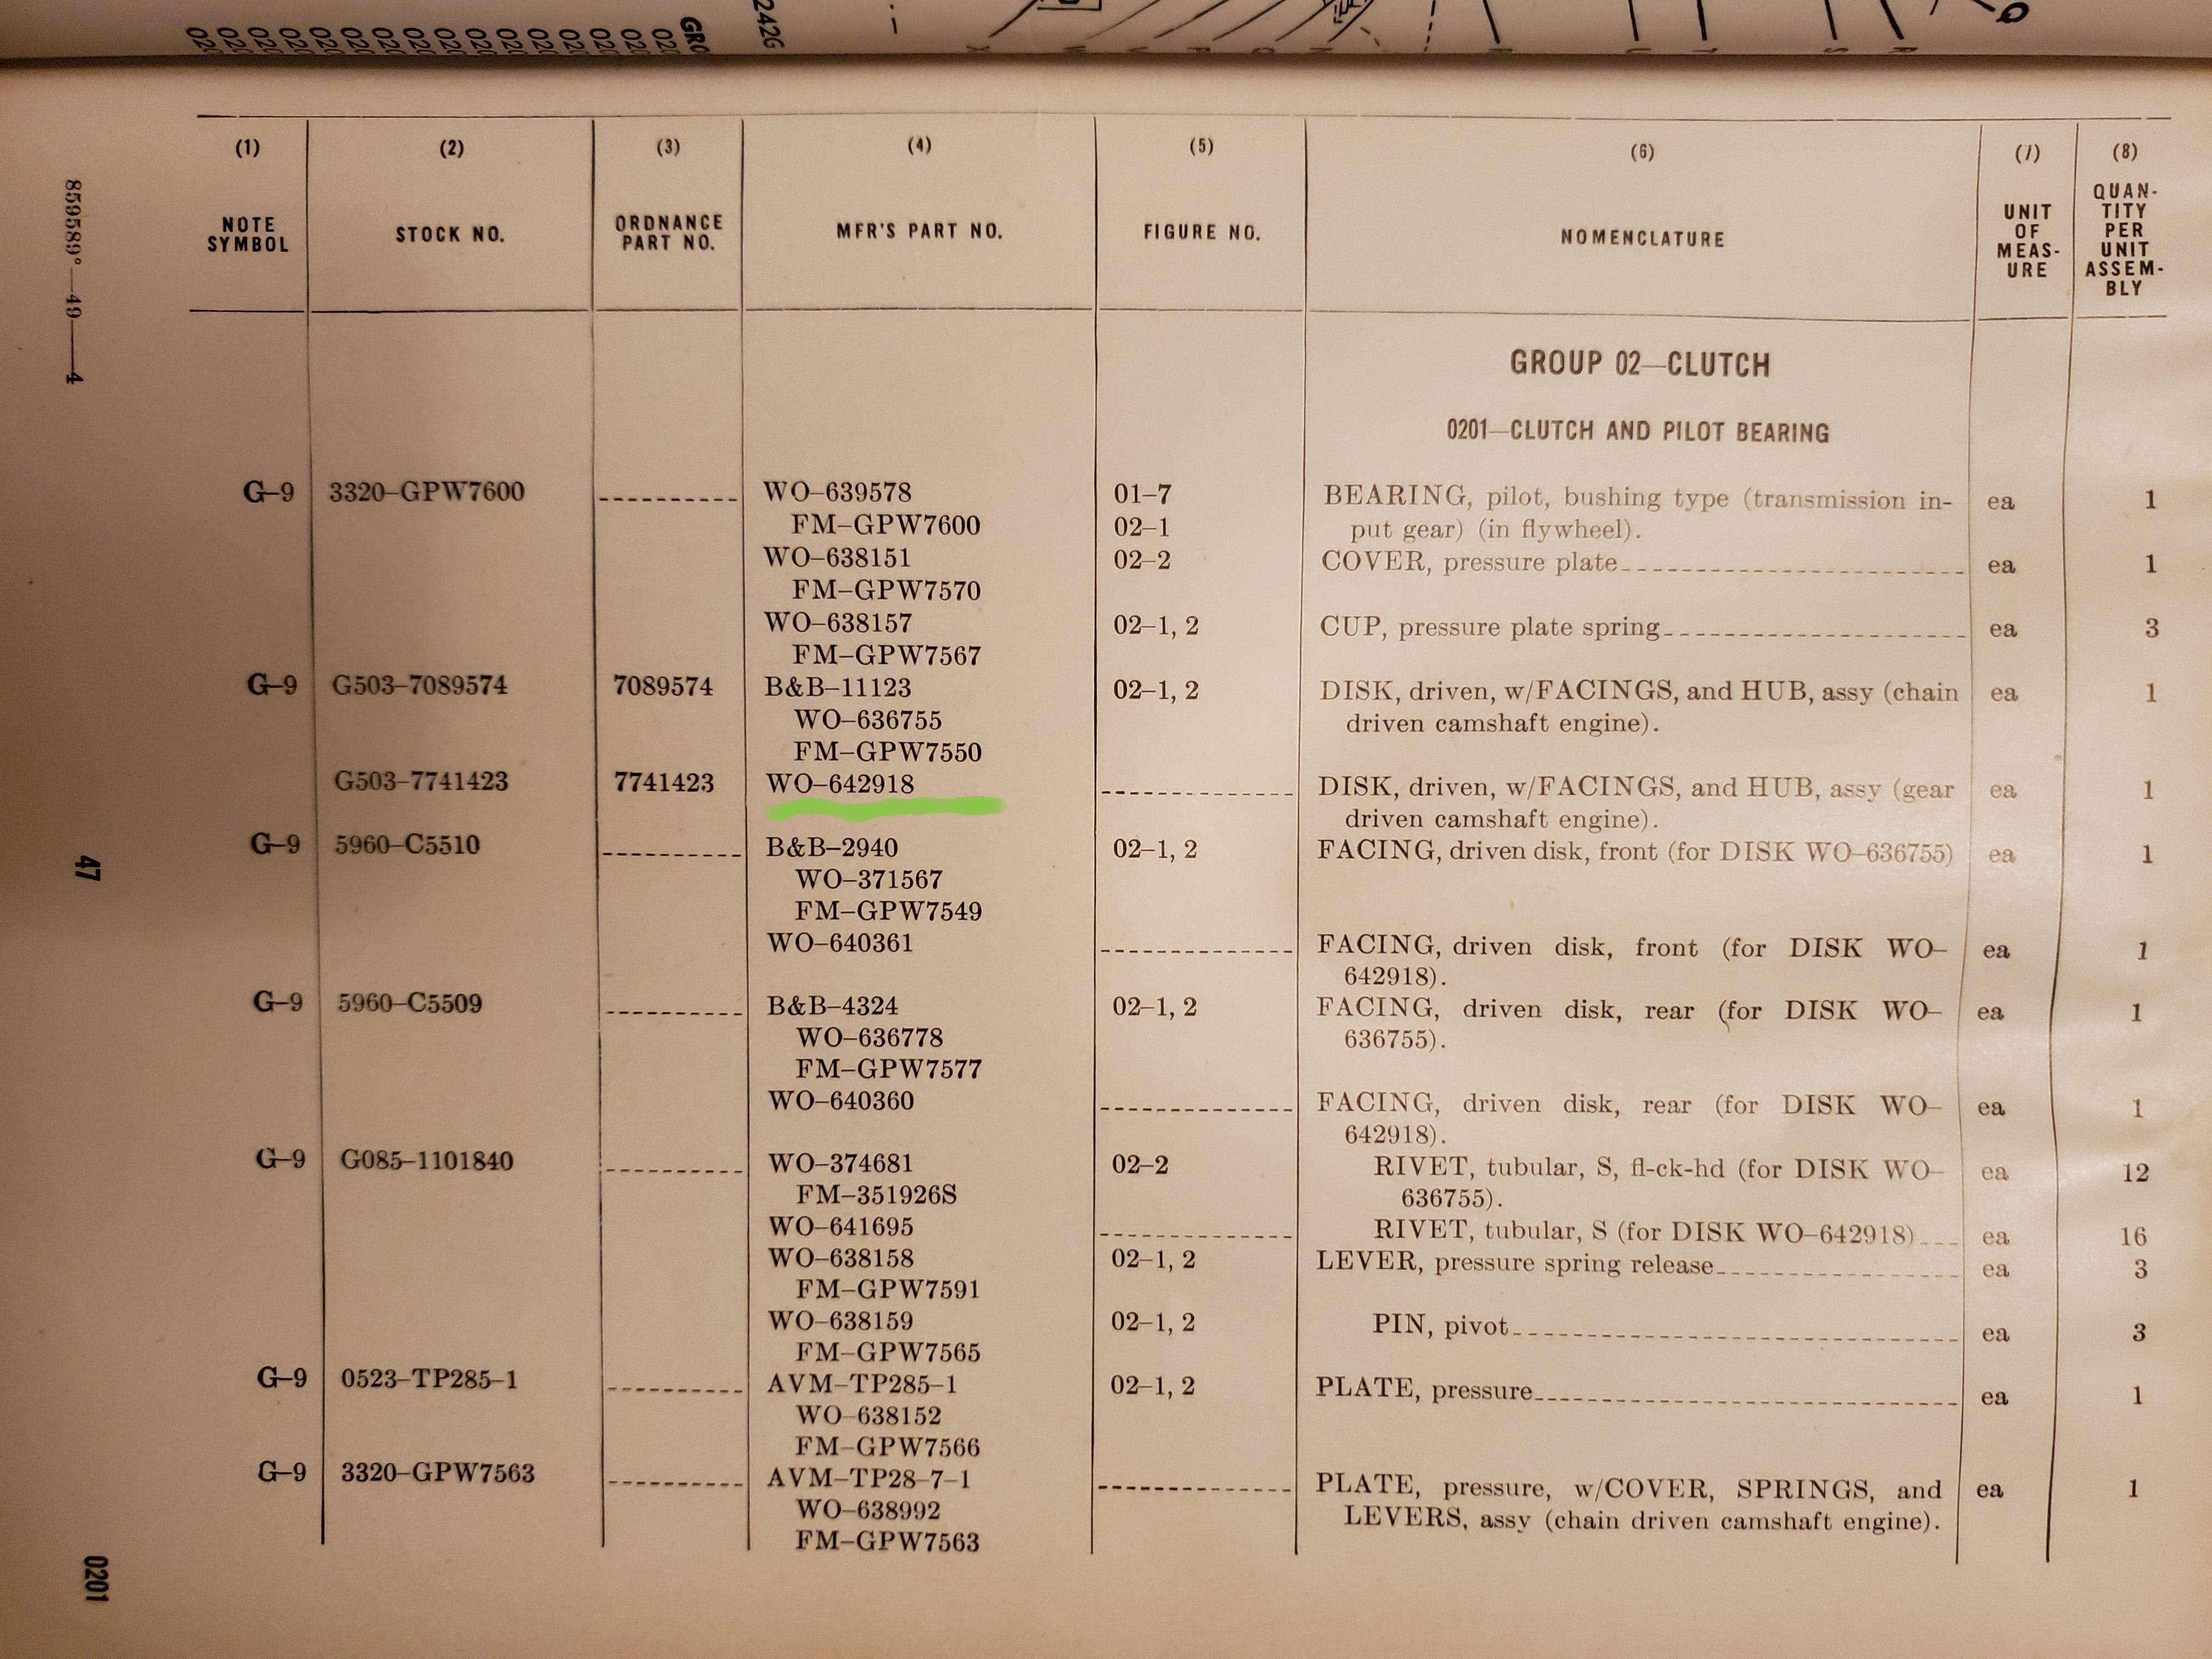 242G
GRO
(1) (2) (3) (4) (5) (6) (7) (8)
NOTE SYMBOL STOCK NO. ORDNANCE PART NO. MFR'S PART NO. FIGURE NO. NOMENCLATURE UNIT OF MEAS-URE QUAN-TITY PER UNIT ASSEM-BLY
GROUP 02—CLUTCH
0201—CLUTCH AND PILOT BEARING
G–9 3320–GPW7600 WO–639578 01–7 BEARING, pilot, bushing type (transmission in- ea 1
FM–GPW7600 02–1 put gear) (in flywheel).
WO–638151 02–2 COVER, pressure plate ea 1
FM–GPW7570
WO–638157 02–1, 2 CUP, pressure plate spring ea 3
FM–GPW7567
G–9 G503–7089574 7089574 B&B–11123 02–1, 2 DISK, driven, w/FACINGS, and HUB, assy (chain ea 1
WO–636755 driven camshaft engine).
FM–GPW7550
G503–7741423 7741423 WO–642918 DISK, driven, w/FACINGS, and HUB, assy (gear ea 1
driven camshaft engine).
G–9 5960–C5510 B&B–2940 02–1, 2 FACING, driven disk, front (for DISK WO–636755) ea 1
WO–371567
FM–GPW7549
WO–640361 FACING, driven disk, front (for DISK WO– ea 1
642918).
G–9 5960–C5509 B&B–4324 02–1, 2 FACING, driven disk, rear (for DISK WO– ea 1
WO–636778 636755).
FM–GPW7577
WO–640360 FACING, driven disk, rear (for DISK WO– ea 1
642918).
G–9 G085–1101840 WO–374681 02–2 RIVET, tubular, S, fl-ck-hd (for DISK WO– ea 12
FM–351926S 636755).
WO–641695 RIVET, tubular, S (for DISK WO–642918) ea 16
WO–638158 02–1, 2 LEVER, pressure spring release ea 3
FM–GPW7591
WO–638159 02–1, 2 PIN, pivot ea 3
FM–GPW7565
G–9 0523–TP285–1 AVM–TP285–1 02–1, 2 PLATE, pressure ea 1
WO–638152
FM–GPW7566
G–9 3320–GPW7563 AVM–TP28–7–1 PLATE, pressure, w/COVER, SPRINGS, and ea 1
WO–638992 LEVERS, assy (chain driven camshaft engine).
FM–GPW7563
859589°—49——4
47
0201